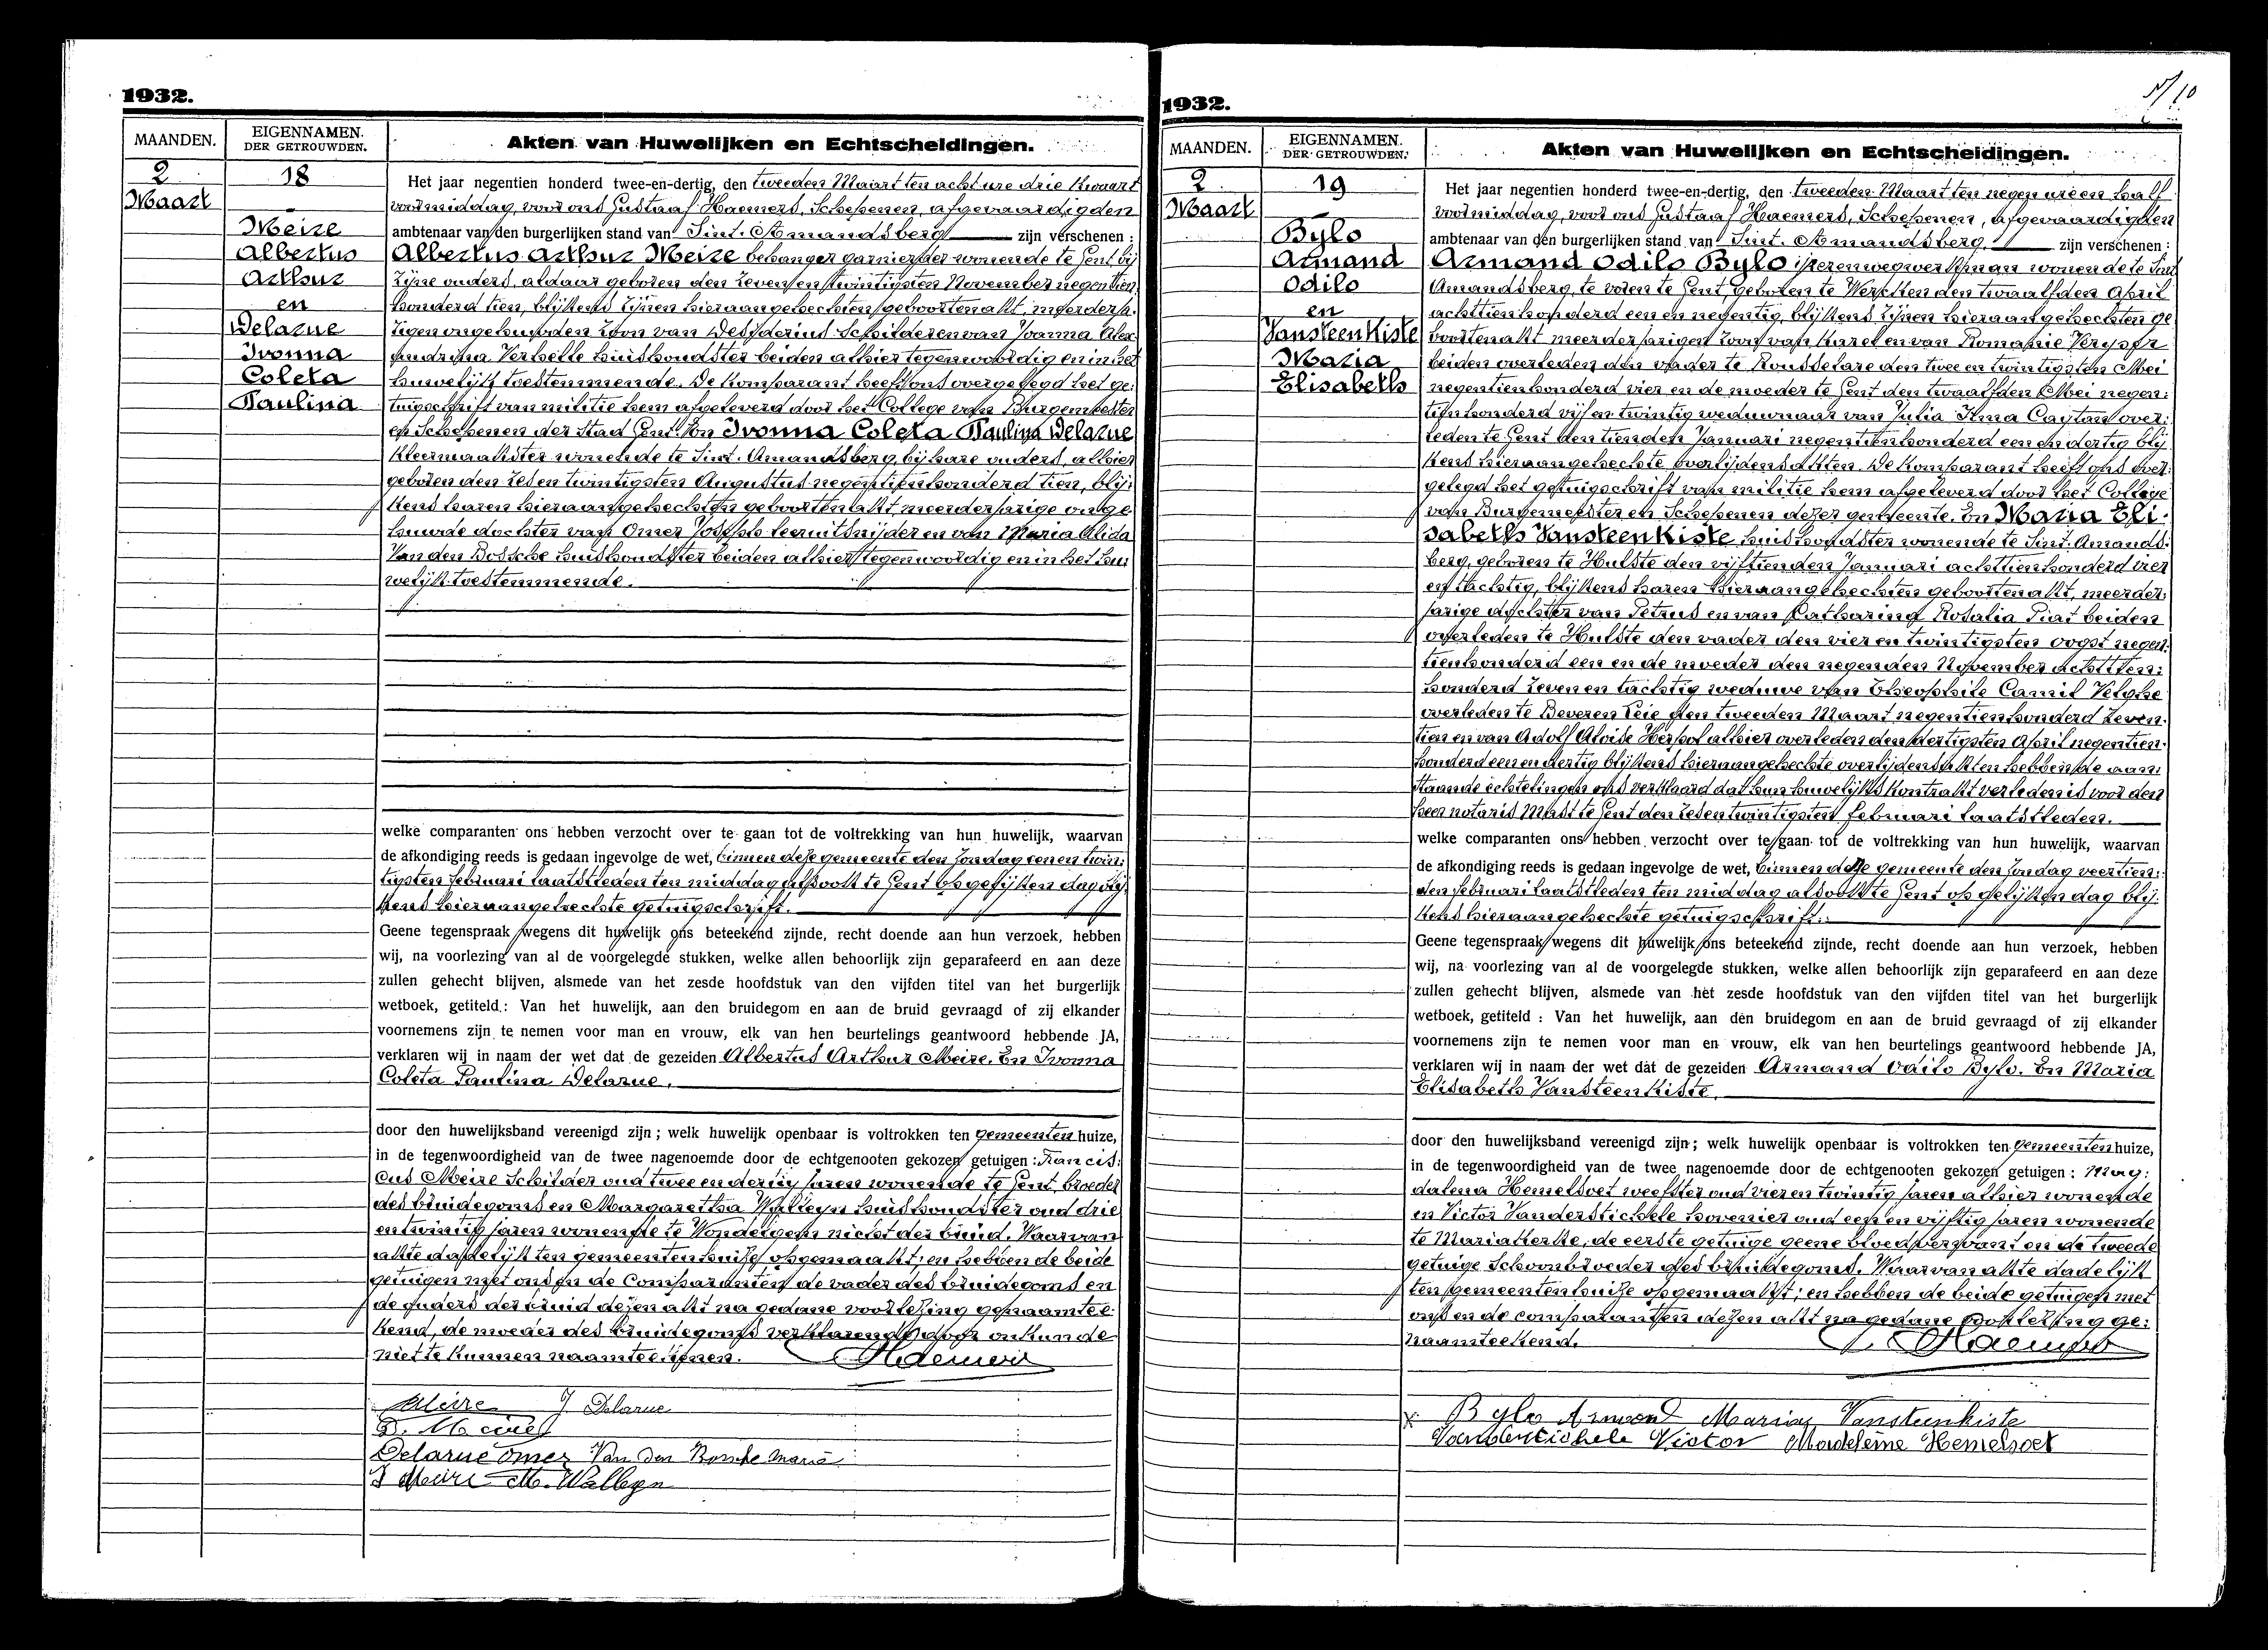 1932.
MAANDEN.
EIGENNAMEN.
DER GETROUWDEN.
Akten van Huwelijken en Echtscheidingen.
2
Maart
18
Meire
Albertus
Arthur
en
Delarue
Ivonna
Coleta
Paulina
Het jaar negentien honderd twee-en-dertig, den tweeden Maart ten acht ure drie kwaart
voormiddag, voor ons Gustaaf Haemers, Schepenen, afgevaardigden
ambtenaar van den burgerlijken stand van Sint. Amandsberg zijn verschenen :
Albertus Arthur Meire behanger garnierder wonende te Gent bij
zijne ouders, aldaar geboren den zeven en twintigsten November negentien
honderd tien, blijkens zijnen hieraangehechten geboortenakt, meerderja.
rigen ongehuwden zoon van Desiderius Schilder en van Joanna Alex
andrina Verhelle huishoudster beiden alhier tegenwoordig en in het
huwelijk toestemmende. De komparant heeft ons overgelegd het ge:
tuigschrift van militie hem afgeleverd door het College van Burgemeester
en Schepenen der Stad Gent. En Ivonna Coleta Paulina Delarue
kleermaakster wonende te Sint. Amandsberg, bij hare ouders, alhier
geboren den zes en twintigsten Augustus negentienhonderd tien, blij:
kens haren hieraangehechten geboortenakt meerderjarige onge
huwde dochter van Omer Joseph leeruitsnijder en van Maria Alida
Van den Bossche huishoudster beiden alhier tegenwoordig en in het hu:
welijk toestemmende.
welke comparanten ons hebben verzocht over te gaan tot de voltrekking van hun huwelijk, waarvan
de afkondiging reeds is gedaan ingevolge de wet, binnen deze gemeente den Zondag een en twin:
tigsten februari laatstleden ten middag alsook te Gent op gelijken dag blij:
kens hieraangehechte getuigschrift.
Geene tegenspraak wegens dit huwelijk ons beteekend zijnde, recht doende aan hun verzoek, hebben
wij, na voorlezing van al de voorgelegde stukken, welke allen behoorlijk zijn geparafeerd en aan deze
zullen gehecht blijven, alsmede van het zesde hoofdstuk van den vijfden titel van het burgerlijk
wetboek, getiteld : Van het huwelijk, aan den bruidegom en aan de bruid gevraagd of zij elkander
voornemens zijn te nemen voor man en vrouw, elk van hen beurtelings geantwoord hebbende JA,
verklaren wij in naam der wet dat de gezeiden Albertus Arthur Meire. En Ivonna
Coleta Paulina Delarue.
door den huwelijksband vereenigd zijn ; welk huwelijk openbaar is voltrokken ten gemeenten huize,
in de tegenwoordigheid van de twee nagenoemde door de echtgenooten gekozen getuigen : Francis:
cus Meire Schilder oud twee en dertig jaren wonende te Gent, broeder
des bruidegoms en Margaretha Walleyn huishoudster oud drie
en twintig jaren wonende te Wondelgem nicht der bruid. Waarvan
akte dadelijk ten gemeentenhuize opgemaakt; en hebben de beide
getuigen met ons en de Comparanten de vader des bruidegoms en
de ouders der bruid dezen akt na gedane voorlezing genaamtee:
kend, de moeder des bruidegoms verklarende door onkunde
niet te kunnen naamteekenen. Haemers
Meire I Delarue
D. Meire
Delarue Omer Van den Bossche Maria
F Meire M. Walleyn
1932.
10
MAANDEN.
EIGENNAMEN.
DER GETROUWDEN.
Akten van Huwelijken en Echtscheidingen.
2
Maart
19
Bylo
Armand
Odilo
en
Vansteenkiste
Maria
Elisabeth
Het jaar negentien honderd twee-en-dertig, den tweeden Maart ten negen ure en half
voormiddag, voor ons Gustaaf Haemers, Schepenen, afgevaardigden
ambtenaar van den burgerlijken stand van Sint. Amandsberg, zijn verschenen :
Armand Odilo Bylo ijzerenwegwerkman wonende te Sint
Amandsberg, te voren te Gent, geboren te Werken den twaalfden April
achttienhonderd een en negentig, blijkens zijnen hieraangehechten ge
boortenakt meerderjarigen zoon van Karel en van Romanie
beiden overleden den vader te Rousselare den twee en twintigsten Mei
negentienhonderd vier en de moeder te Gent den twaalfden Mei negen:
tienhonderd vijf en twintig weduwnaar van Julia Irma Caytan over:
leden te Gent den tienden Januari negentienhonderd een en dertig blij
kens hieraangehechte overlijdensakten. De komparant heeft ons over:
gelegd het getuigschrift van militie hem afgeleverd door het College
van Burgemeester en Schepenen dezer gemeente. En Maria Eli:
sabeth Vansteenkiste huishoudster wonende te Sint. Amands:
berg, geboren te Hulste den vijftienden Januari achttienhonderd vier
en tachtig, blijkens haren hieraangehechten geboortenakt, meerder:
jarige dochter van Petrus en van Catharina Rosalia Piat beiden
overleden te Hulste den vader den vier en twintigsten oogst negen:
tienhonderd een en de moeder den negenden November achttien:
honderd zeven en tachtig weduwe van Theophile Camil Velghe
overleden te Beveren Leie den tweeden Maart negentienhonderd zeven:
tien en van Adolf Aloise Herpol alhier overleden den dertigsten April negentien:
honderd een en dertig blijkens hieraangehechte overlijdensakten hebbende aan:
staande echtelingen ons verklaard dat hun huwelijkskontrakt verleden is voor den
heer notaris Mast te Gent den zes en twintigsten februari laatstleden.
welke comparanten ons hebben verzocht over te gaan tot de voltrekking van hun huwelijk, waarvan
de afkondiging reeds is gedaan ingevolge de wet, binnen deze gemeente den Zondag veertien:
den februari laatstleden ten middag alsook te Gent op gelijken dag blij:
kens hieraangehechte getuigschrift.
Geene tegenspraak wegens dit huwelijk ons beteekend zijnde, recht doende aan hun verzoek, hebben
wij, na voorlezing van al de voorgelegde stukken, welke allen behoorlijk zijn geparafeerd en aan deze
zullen gehecht blijven, alsmede van het zesde hoofdstuk van den vijfden titel van het burgerlijk
wetboek, getiteld : Van het huwelijk, aan den bruidegom en aan de bruid gevraagd of zij elkander
voornemens zijn te nemen voor man en vrouw, elk van hen beurtelings geantwoord hebbende JA,
verklaren wij in naam der wet dat de gezeiden Armand Odilo Bylo. En Maria
Elisabeth Vansteenkiste.
door den huwelijksband vereenigd zijn ; welk huwelijk openbaar is voltrokken ten gemeenten huize,
in de tegenwoordigheid van de twee nagenoemde door de echtgenooten gekozen getuigen : Mag:
dalena Hemelsoet weefster oud vier en twintig jaren alhier wonende
en Victor Vanderstichele hovenier oud een en vijftig jaren wonende
te Mariakerke, de eerste getuige geene bloedverwant en de tweede
getuige Schoonbroeder des bruidegoms. Waarvan akte dadelijk
ten gemeentenhuize opgemaakt; en hebben de beide getuigen met
ons en de comparanten dezen akt na gedane voorlezing ge:
naamteekend. Haemers
Bylo Armand Maria Vansteenkiste
Vanderstichele Victor Madeleine Hemelsoet